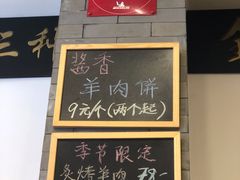 三和
酱香
羊肉饼
9元/个(两个起)
季节限定
炙烤羊肉 78-